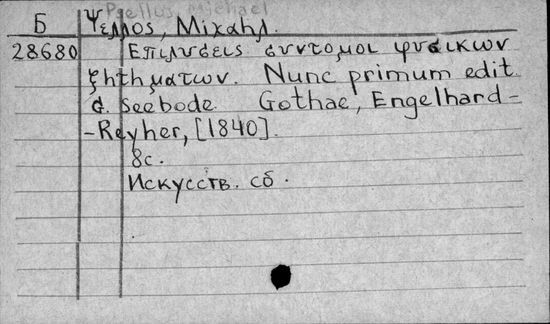 Psellus, Michael
Б Ψελλος, Μιχαηλ.
28680 Επιλυσεις συντομοι φυσικων
ζητηματων. Nunc primum edit
G. Seebode. Gothae, Engelhard-
-Reyher, [1840].
8с.
Искусств. сб.